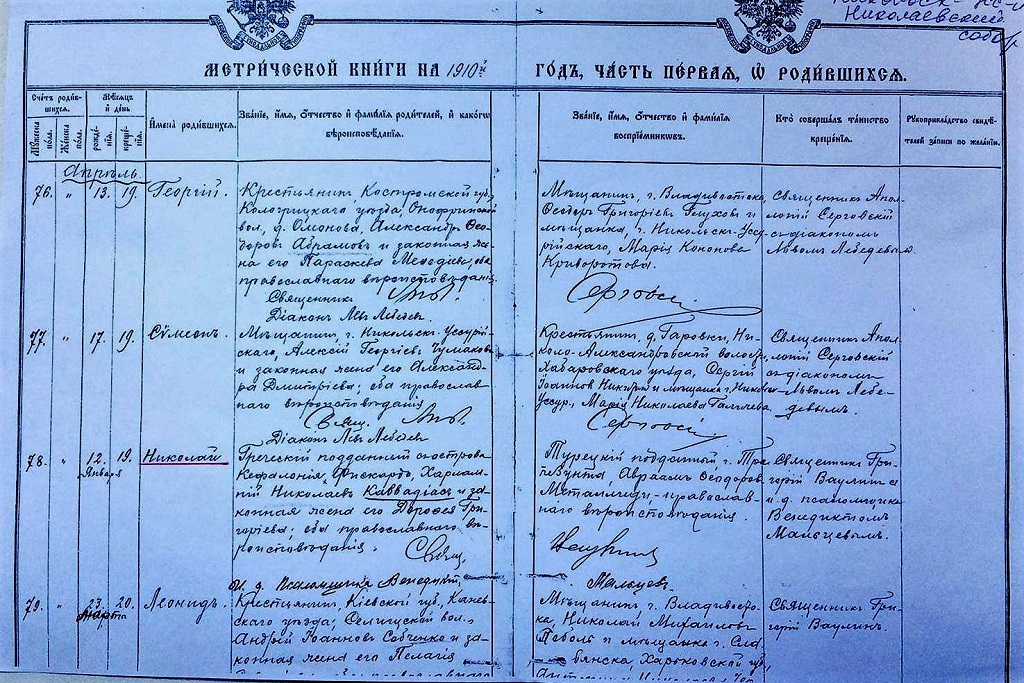 Николаевский
собор
МЕТРИЧЕСКОЙ КНИГИ НА 1910й
ГОДЪ, ЧАСТЬ ПЕРВАЯ, Ѡ РОДИВШИХСЯ.
Счетъ родив-
шихся.
Мѣсяцъ
и день
Мужеска
пола.
Женска
пола.
рожде-
нія.
креще-
нія.
Имена родившихся.
Званіе, имя, отчество и фамилія родителей, и какого
вѣроисповѣданія.
Званіе, имя, отчество и фамилія
воспріемниковъ.
Кто совершалъ таинство
крещенія.
Рукоприкладство свидѣ-
телей записи по желанію.
Апрѣль.
76. " 13. 19. Георгій.
Крестьянин, Костромской губ.
Кологривскаго уѣзда, Онофринской
вол., д. Омонова, Александръ Ѳео-
доровъ Абрамовъ и законная же-
на его Параскева; оба
православнаго вѣроисповѣданія.
Священникъ
Діаконъ Левъ Лебедевъ
Мѣщанин, г. Владивостока,
Ѳеодоръ Григоріевъ Глуховъ и
мѣщанка, г. Никольска-Уссу-
рійскаго, Марія Кононова
Криворотова.
Священникъ Апол-
лоній Серговскій
съ діакономъ
Львомъ Лебедевымъ.
77. " 17. 19. Сѵмеонъ.
Мѣщанин, г. Никольска-Уссурій-
скаго, Алексій Георгіевъ Чумаковъ
и законная жена его Александ-
ра Димитріева; оба православ-
наго вѣроисповѣданія
Свящ.
Діаконъ Левъ Лебедевъ
Крестьянин, д. Гаровки, Ни-
коло-Александровской волости,
Хабаровскаго уѣзда, Сергій
Іоанновъ и мѣщанка г. Никольска-
Уссур., Марія Николаева
Священникъ Апол-
лоній Серговскій
съ діакономъ
Львомъ Лебе-
девымъ.
78. " 12. 19. Николай
Января
Греческій подданный острова
Кефалонія, Фискардо, Харлам-
пій Николаевъ Каввадіасъ и за-
конная жена его Дороѳея Гри-
горіева; оба православнаго вѣ-
роисповѣданія.
Свящ.
Турецкій подданный г. Тра-
пезунта, Авраамъ Ѳеодоровъ
Металлиди-православ-
наго вѣроисповѣданія.
Священникъ Гри-
горій Ваулинъ съ
и. д. псаломщика
Венедиктомъ
Мальцевымъ.
И. д. Псаломщика Венедиктъ
Мальцевъ.
79. " 23. 20. Леонидъ.
Марта
Крестьянин, Кіевской губ., Канев-
скаго уѣзда, Селищской вол.,
Андрей Іоанновъ Собченко и за-
конная жена его Пелагія
Мѣщанин, г. Владивосто-
ка, Николай Михаиловъ
и мѣщанка г. Сла-
вянска, Харьковской губ.,
Священникъ Гри-
горій Ваулинъ.